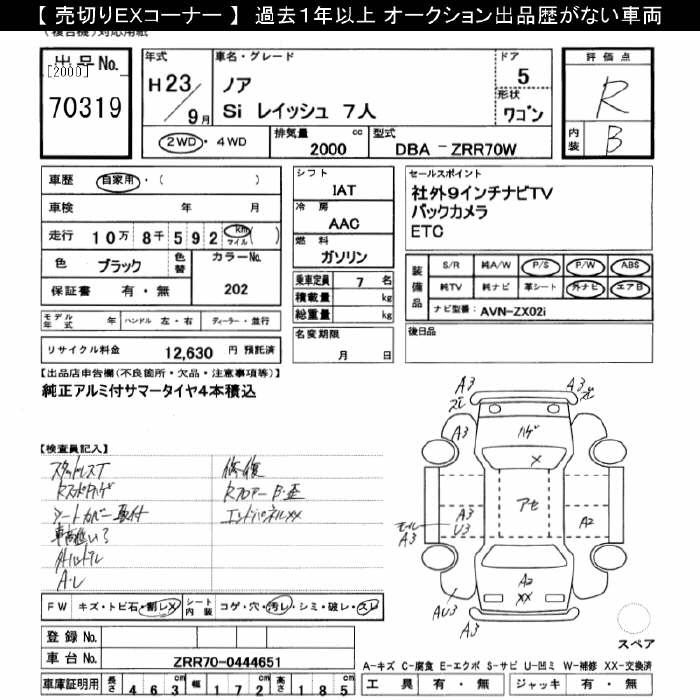 【 売切りEXコーナー 】 過去1年以上 オークション出品歴がない車両
(複合機)対応用紙
出品No.
[2000]
70319
年式
H23/9月
車名・グレード
ノア
Si レイッシュ 7人
ドア
5
形状
ワゴン
2WD・4WD
排気量
2000 cc
型式
DBA－ZRR70W
評価点
R
内装
B
車歴 自家用・( )
車検 年 月
走行 10万 8千 592 km マイル ( )
色 ブラック
色替
カラーNo.
202
保証書 有・無
モデル年式 年 ハンドル 左・右 ディーラー・並行
リサイクル料金 12,630 円 預託済
シフト
IAT
冷房
AAC
燃料
ガソリン
乗車定員 7 名
積載量 kg
総重量 kg
名変期限
月 日
セールスポイント
社外9インチナビTV
バックカメラ
ETC
装備品
S/R 純A/W P/S P/W ABS
純TV 純ナビ 革シート 外ナビ エアB
ナビ型番: AVN-ZX02i
後日品
【出品店申告欄(不良箇所・欠品・注意事項等)】
純正アルミ付サマータイヤ4本積込
【検査員記入】
スタッドレスT
シートカバー取付
A・L
修復
Rフロアー B・歪
エンドパネルXX
A3
A3
A3
A3
ハゲ
X
アセ
A3
U3
モール
A3
A2
A2
XX
A3
AU3
FW キズ・トビ石・割レX
シート内装 コゲ・穴・汚レ・シミ・破レ・スレ
登録No.
車台No. ZRR70-0444651
車庫証明用 長さ 463 幅 172 高さ 185
スペア
A-キズ C-腐食 E-エクボ S-サビ U-凹ミ W-補修 XX-交換済
工具 有・無 ジャッキ 有・無